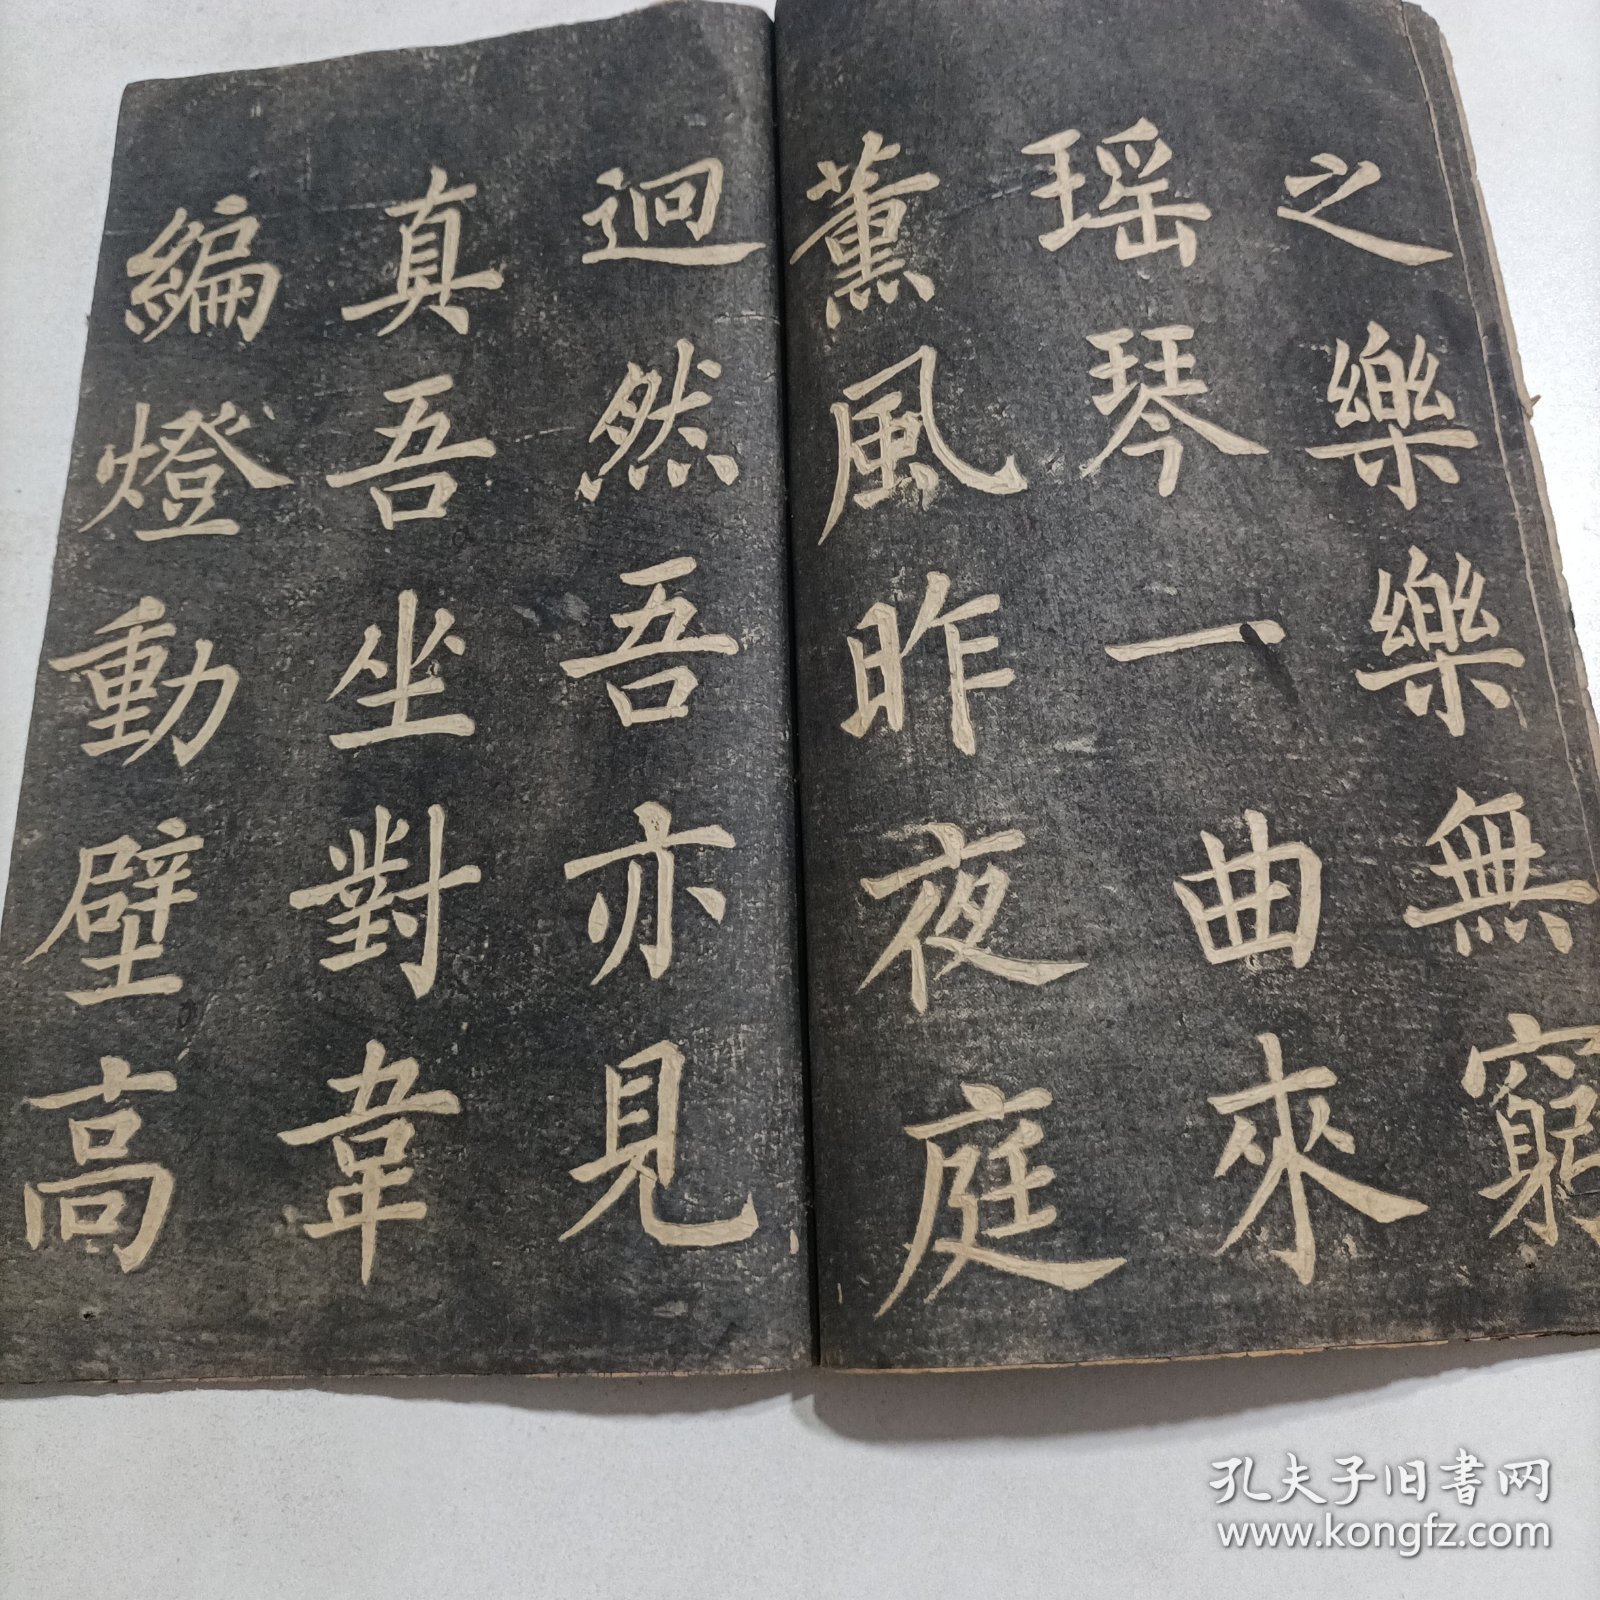 之樂樂無窮
瑶琴一曲來
薰風昨夜庭
迥然吾亦見
真吾坐對韋
編燈動壁高
孔夫子旧書网
www.kongfz.com